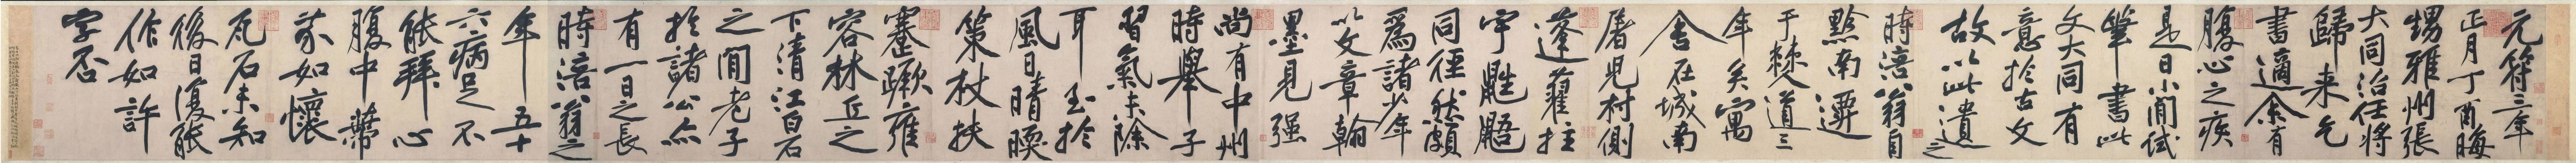 元符三年
正月丁酉晦
甥雅州張
大同治任將
歸来乞
書適余有
腹心之疾
是日小閒試
筆書此
文大同有
意於古文
故以此遺之
時涪翁自
黔南遷
于僰道三
年矣寓
舍在城南
屠兒村側
蓬藋拄
宇鼪鼯
同徑然頗
為諸少年
以文章翰
墨見强
尚有中州
時舉子
習氣未除
耳至於
風日晴暖
策杖扶
蹇蹶雍
容林丘之
下清江白石
之間老子
於諸公亦
有一日之長
時涪翁之
年五十
六病足不
能拜心
腹中蔕
芥如懷
瓦石未知
後日復能
作如許
字否